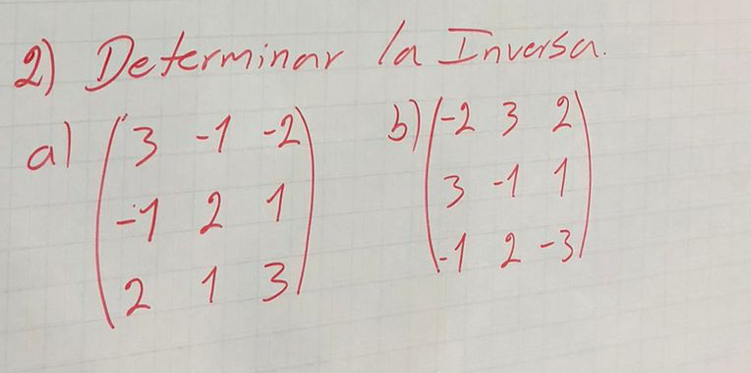 2) Determinar la Inversa.
a) (3 -1 -2) b) (-2 3 2)
-1 2 1 3 -1 1
2 1 3 -1 2 -3